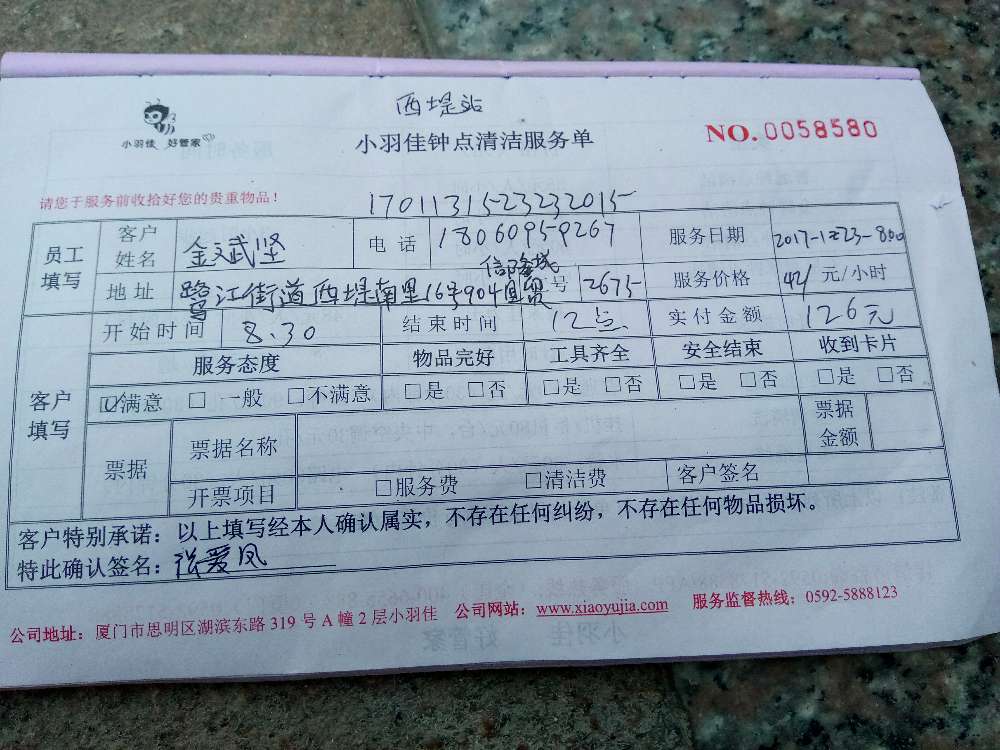 西堤站
小羽佳 好管家
小羽佳钟点清洁服务单
NO.0058580
请您于服务前收拾好您的贵重物品！
1701131523232015
员工填写 客户姓名 金文武坚 电话 18060959267 服务日期 2017-12-23-8:00
地址 鹭江街道西堤南里16号904 信隆城 号 2675 服务价格 42/元/小时
开始时间 8.30 结束时间 12点 实付金额 126元
客户填写 服务态度 物品完好 工具齐全 安全结束 收到卡片
☑满意 □一般 □不满意 □是 □否 □是 □否 □是 □否 □是 □否
票据 票据名称 票据金额
开票项目 □服务费 □清洁费 客户签名
客户特别承诺：以上填写经本人确认属实，不存在任何纠纷，不存在任何物品损坏。
特此确认签名：张爱凤
公司地址：厦门市思明区湖滨东路 319 号 A 幢 2 层小羽佳 公司网站：www.xiaoyujia.com 服务监督热线：0592-5888123